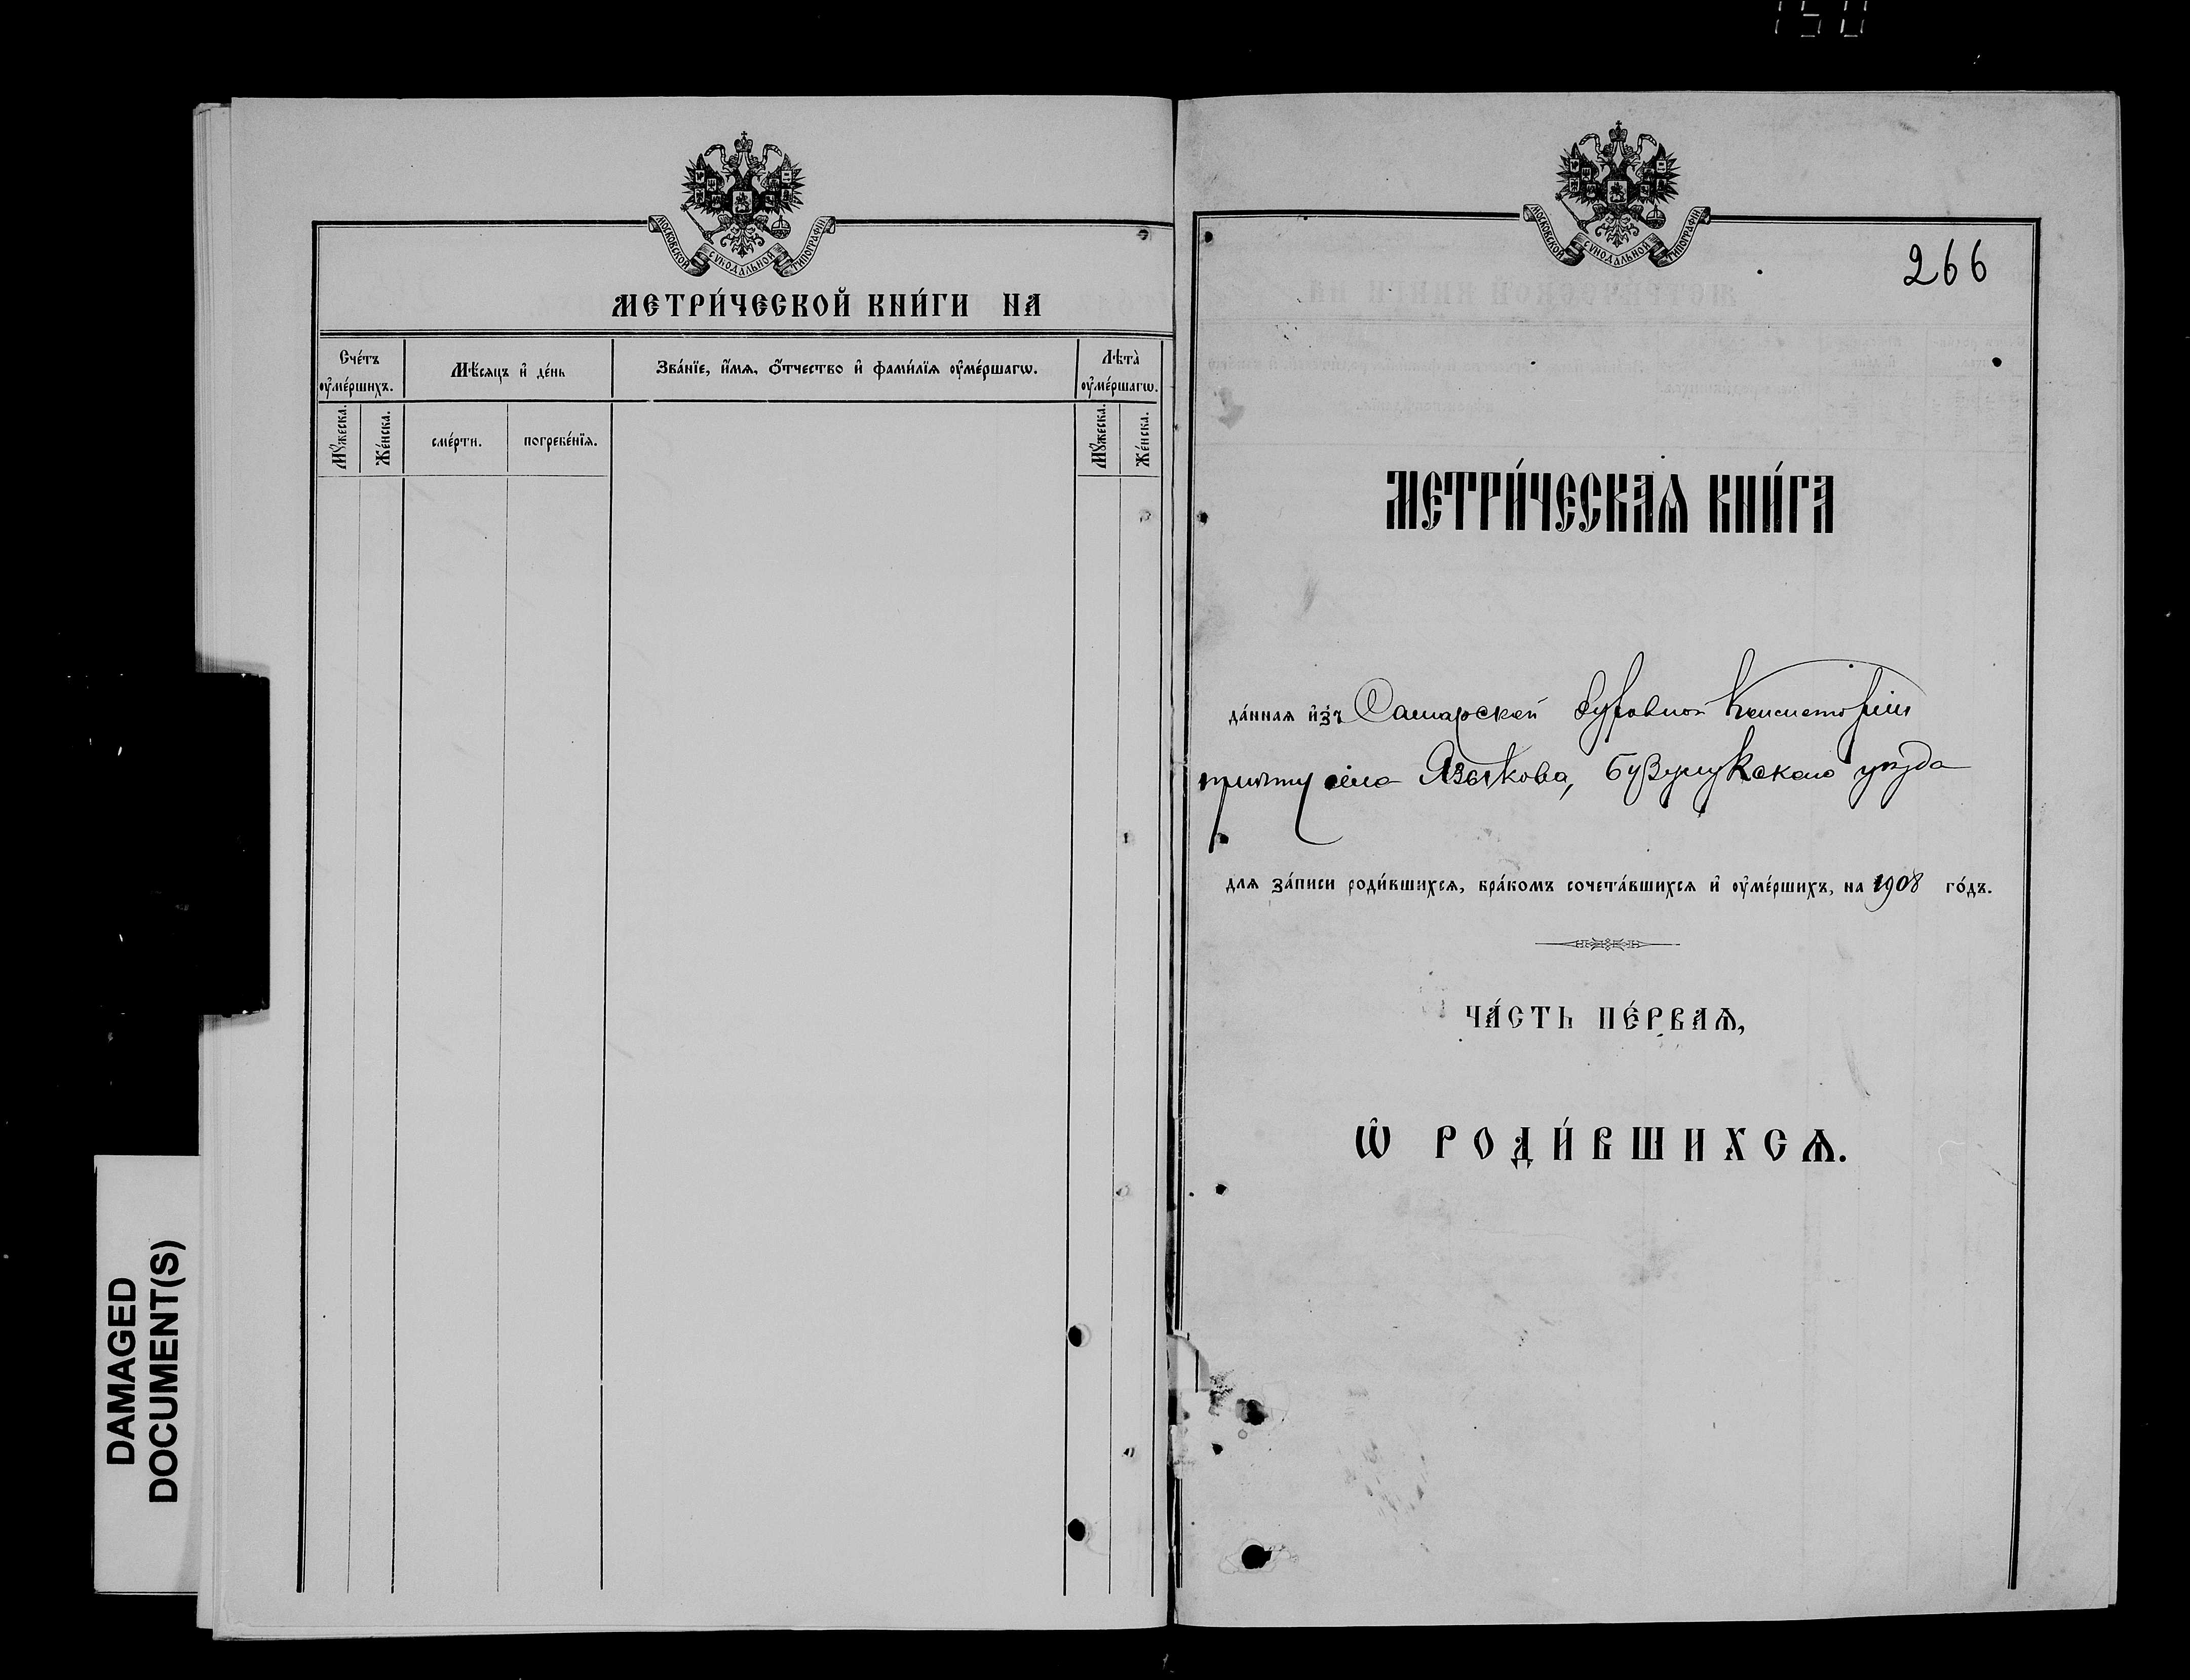 150
МОСКОВСКОЙ СѴНОДАЛЬНОЙ ТИПОГРАФІИ
МЕТРИ́ЧЕСКОЙ КНИ́ГИ НА
Сче́тъ ᲂу҆ме́ршихъ.
Мѣ́сяцъ и҆ де́нь
Зва́нїе, и҆́мѧ, ѻ҆́тчество и҆ фами́лїѧ ᲂу҆ме́ршагѡ.
Лѣта̀ ᲂу҆ме́ршагѡ.
Мꙋ́жеска.
Же́нска.
сме́рти.
погребе́нїѧ.
Мꙋ́жеска.
Же́нска.
МОСКОВСКОЙ СѴНОДАЛЬНОЙ ТИПОГРАФІИ
266
МЕТРИ́ЧЕСКАѦ КНИ́ГА
да́ннаѧ и҆з̾ Самарской Духовной Консисторіи
причту села Языкова, Бузулукскаго уѣзда
длѧ за́писи роди́вшихсѧ, бра́комъ сочета́вшихсѧ и҆ ᲂу҆ме́ршихъ, на 1908 го́дъ.
ЧА́СТЬ ПЕ́РВАѦ,
Ѽ РОДИ́ВШИХСѦ.
DAMAGED
DOCUMENT(S)